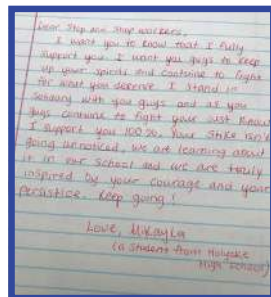 Dear Stop and Shop workers,
I want you to know that I fully
support you. I want you guys to keep
up your spirits and continue to fight
for what you deserve. I stand in
soldiarity with you guys and as you
guys continue to fight your just know
I support you 100%. Your strike isn't
going unnoticed, we are learning about
it in our school and we are truly
inspired by your courage and your
. Keep going!
Love, Mikayla
(a student from Holyoke
High School)